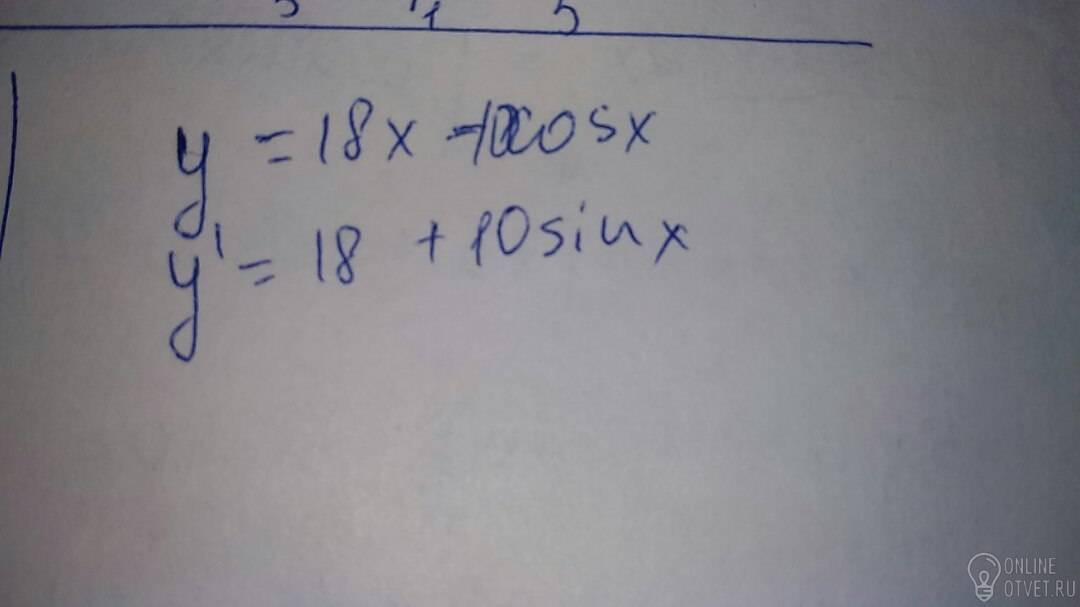 y = 18x - 10cosx
y' = 18 + 10sinx
ONLINE
OTVET.RU